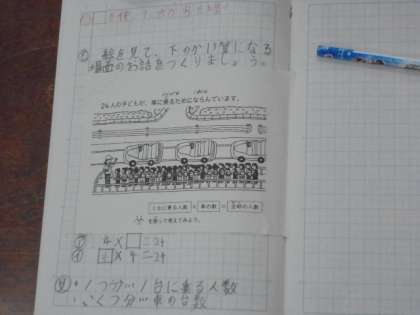 絵を見て、下のかい算になる
場面のお話をつくりましょう。
24人の子どもが、車に乗るためにならんでいます。
1台に乗る人数 × 車の数 = 全部の人数
を使って考えてみよう。
㋐ 4×□=24
㋑ □×4=24
・1つ分…1台に乗る人数
・いくつ分…車の台数